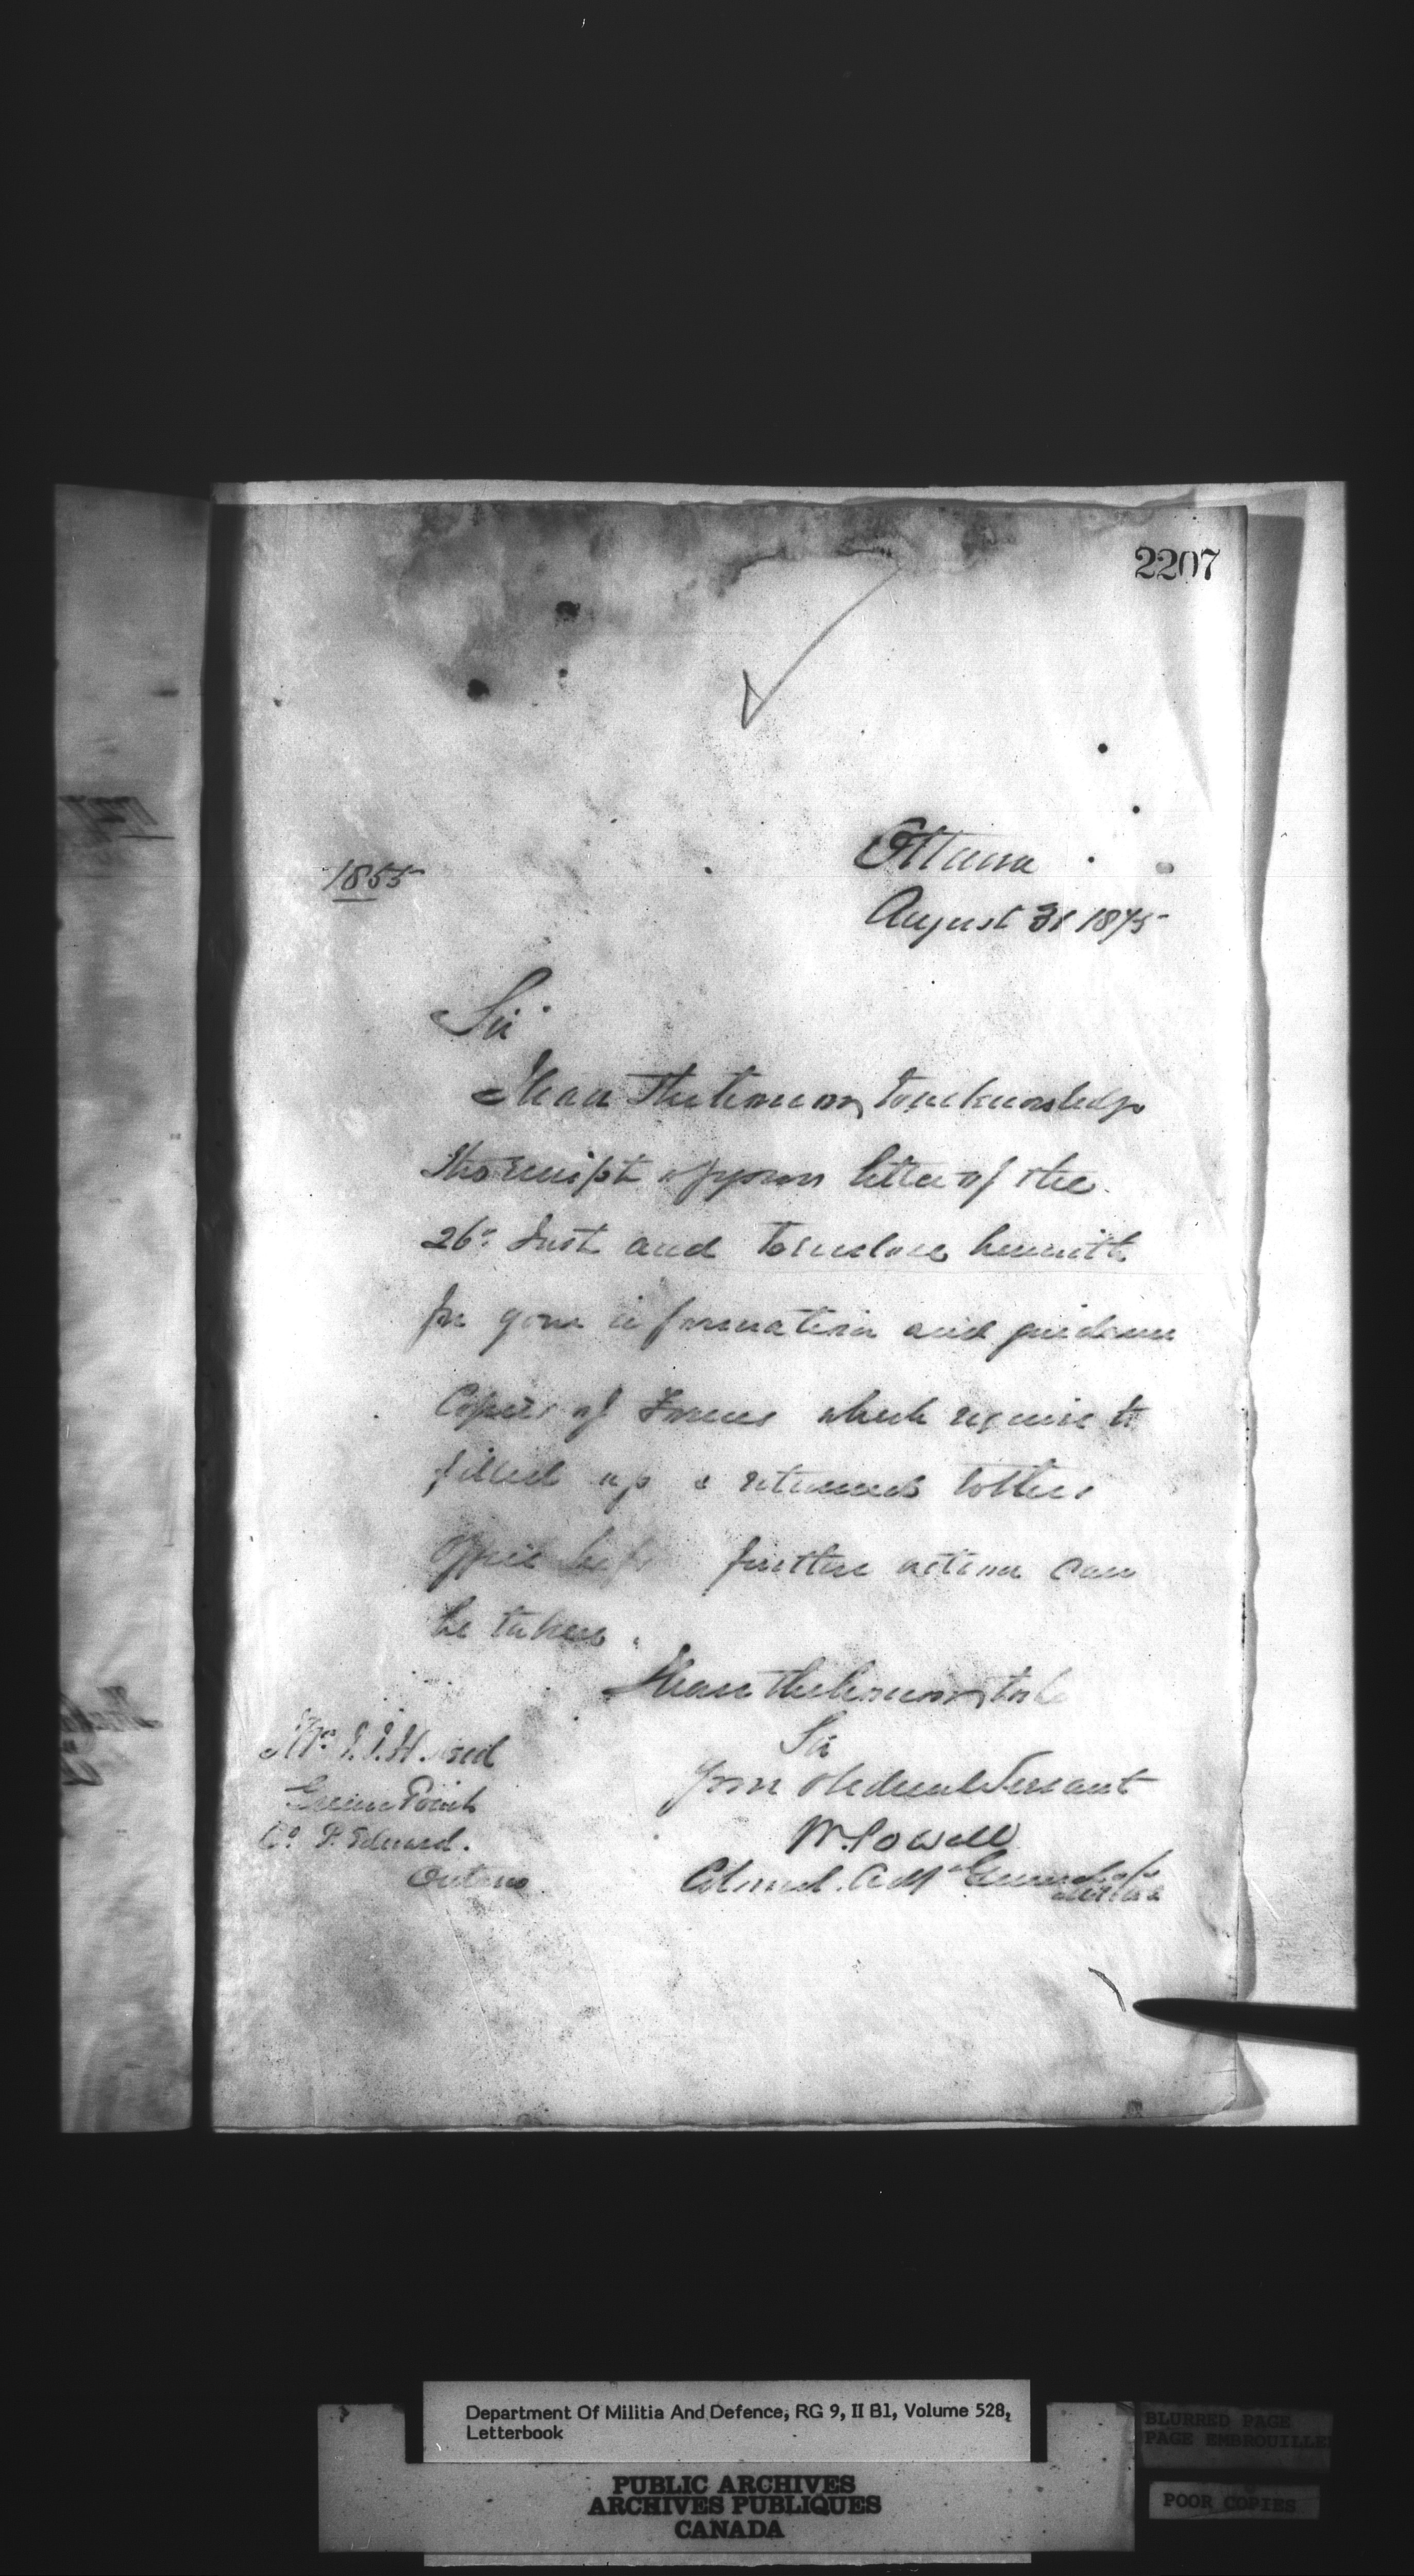 2207
1855
Ottawa
August 31 1875
Sir
I have the honor to acknowledge
the receipt of your letter of the
26th Inst and to enclose herewith
for your information and guidance
Copies of Forms which require to
filled up & returned to this
Office before further action can
be taken.
I have the honor to be
Sir
Your obedient Servant
W. Powell
Colonel. Adjt General of
Militia
Green Point
Co P. Edward.
Ontario
Department Of Militia And Defence, RG 9, II B1, Volume 528,
Letterbook
PUBLIC ARCHIVES
ARCHIVES PUBLIQUES
CANADA
BLURRED PAGE
PAGE EMBROUILLE
POOR COPIES